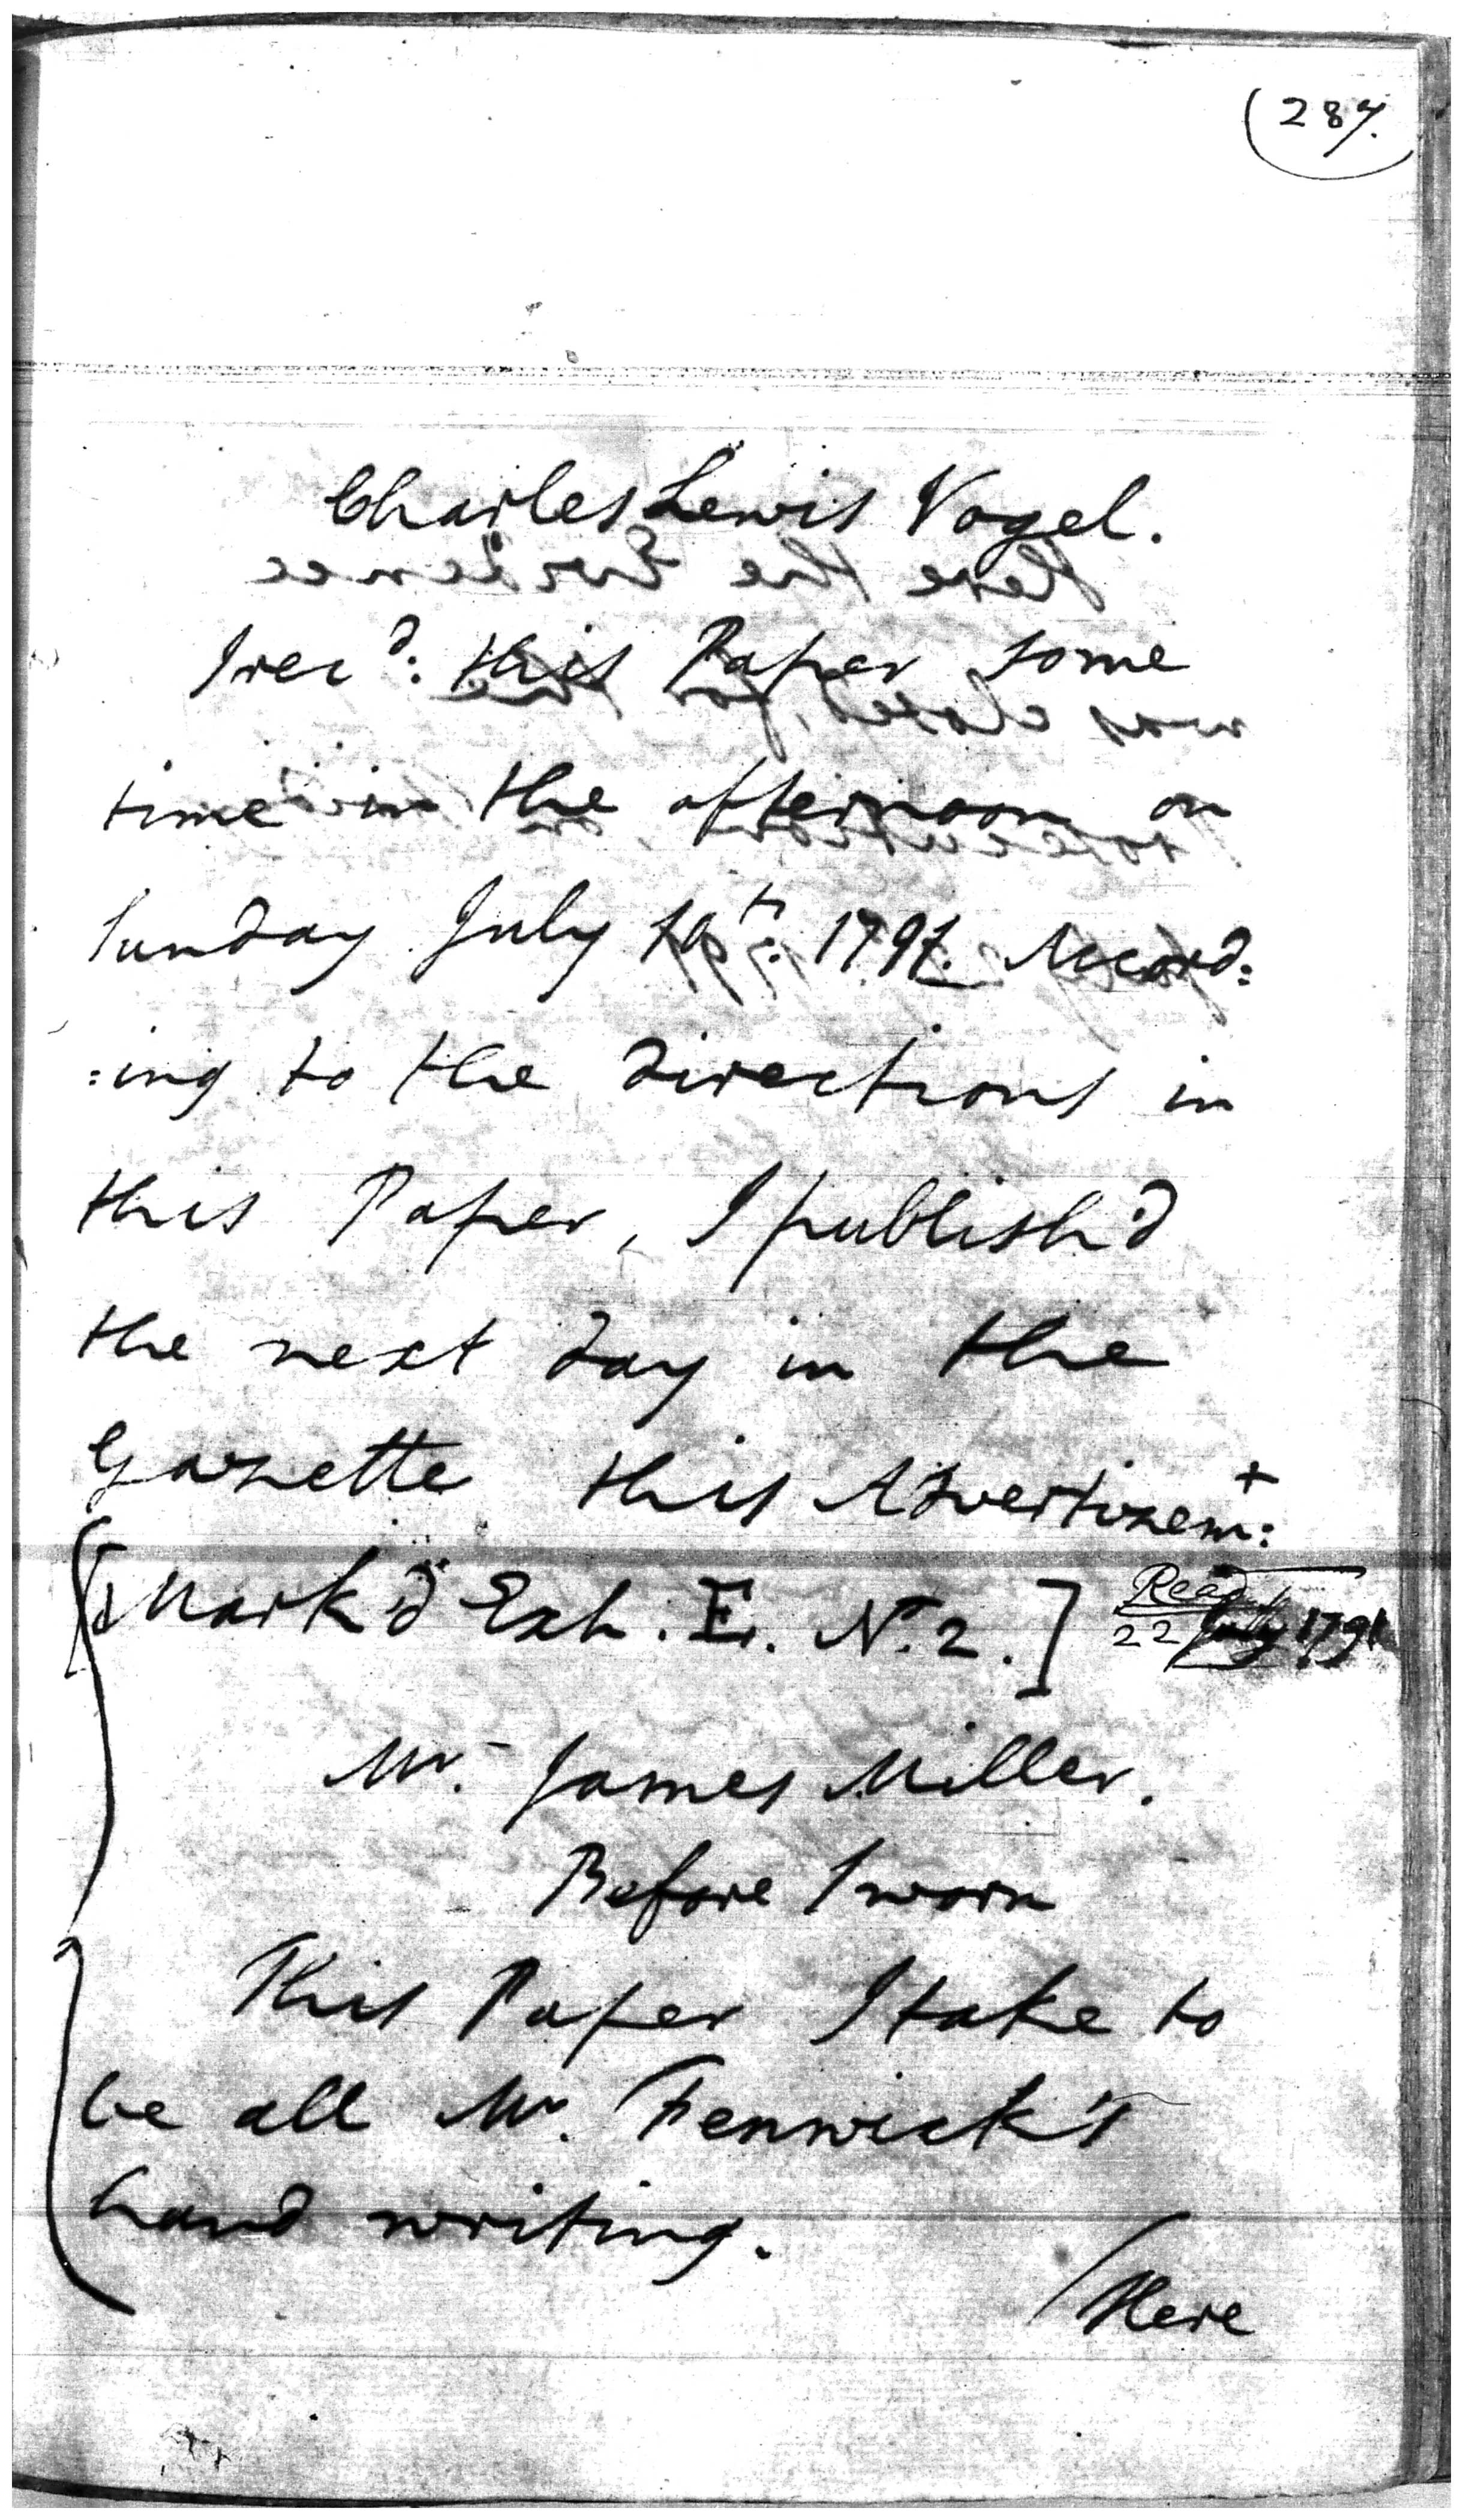 (287.
Charles Lewis Vogel.
I rec^d: this Paper some
time in the afternoon on
Sunday July 10^th: 1791. Accord:
:ing to the directions in
this Paper, I publish'd
the next day in the
Gazette this Advertizem^t:
[Mark'd Exh. E. N. 2.] Read
22 July 1791
Mr. James Miller.
Before Sworn
This Paper I take to
be all Mr. Fenwick's
hand writing.
Here